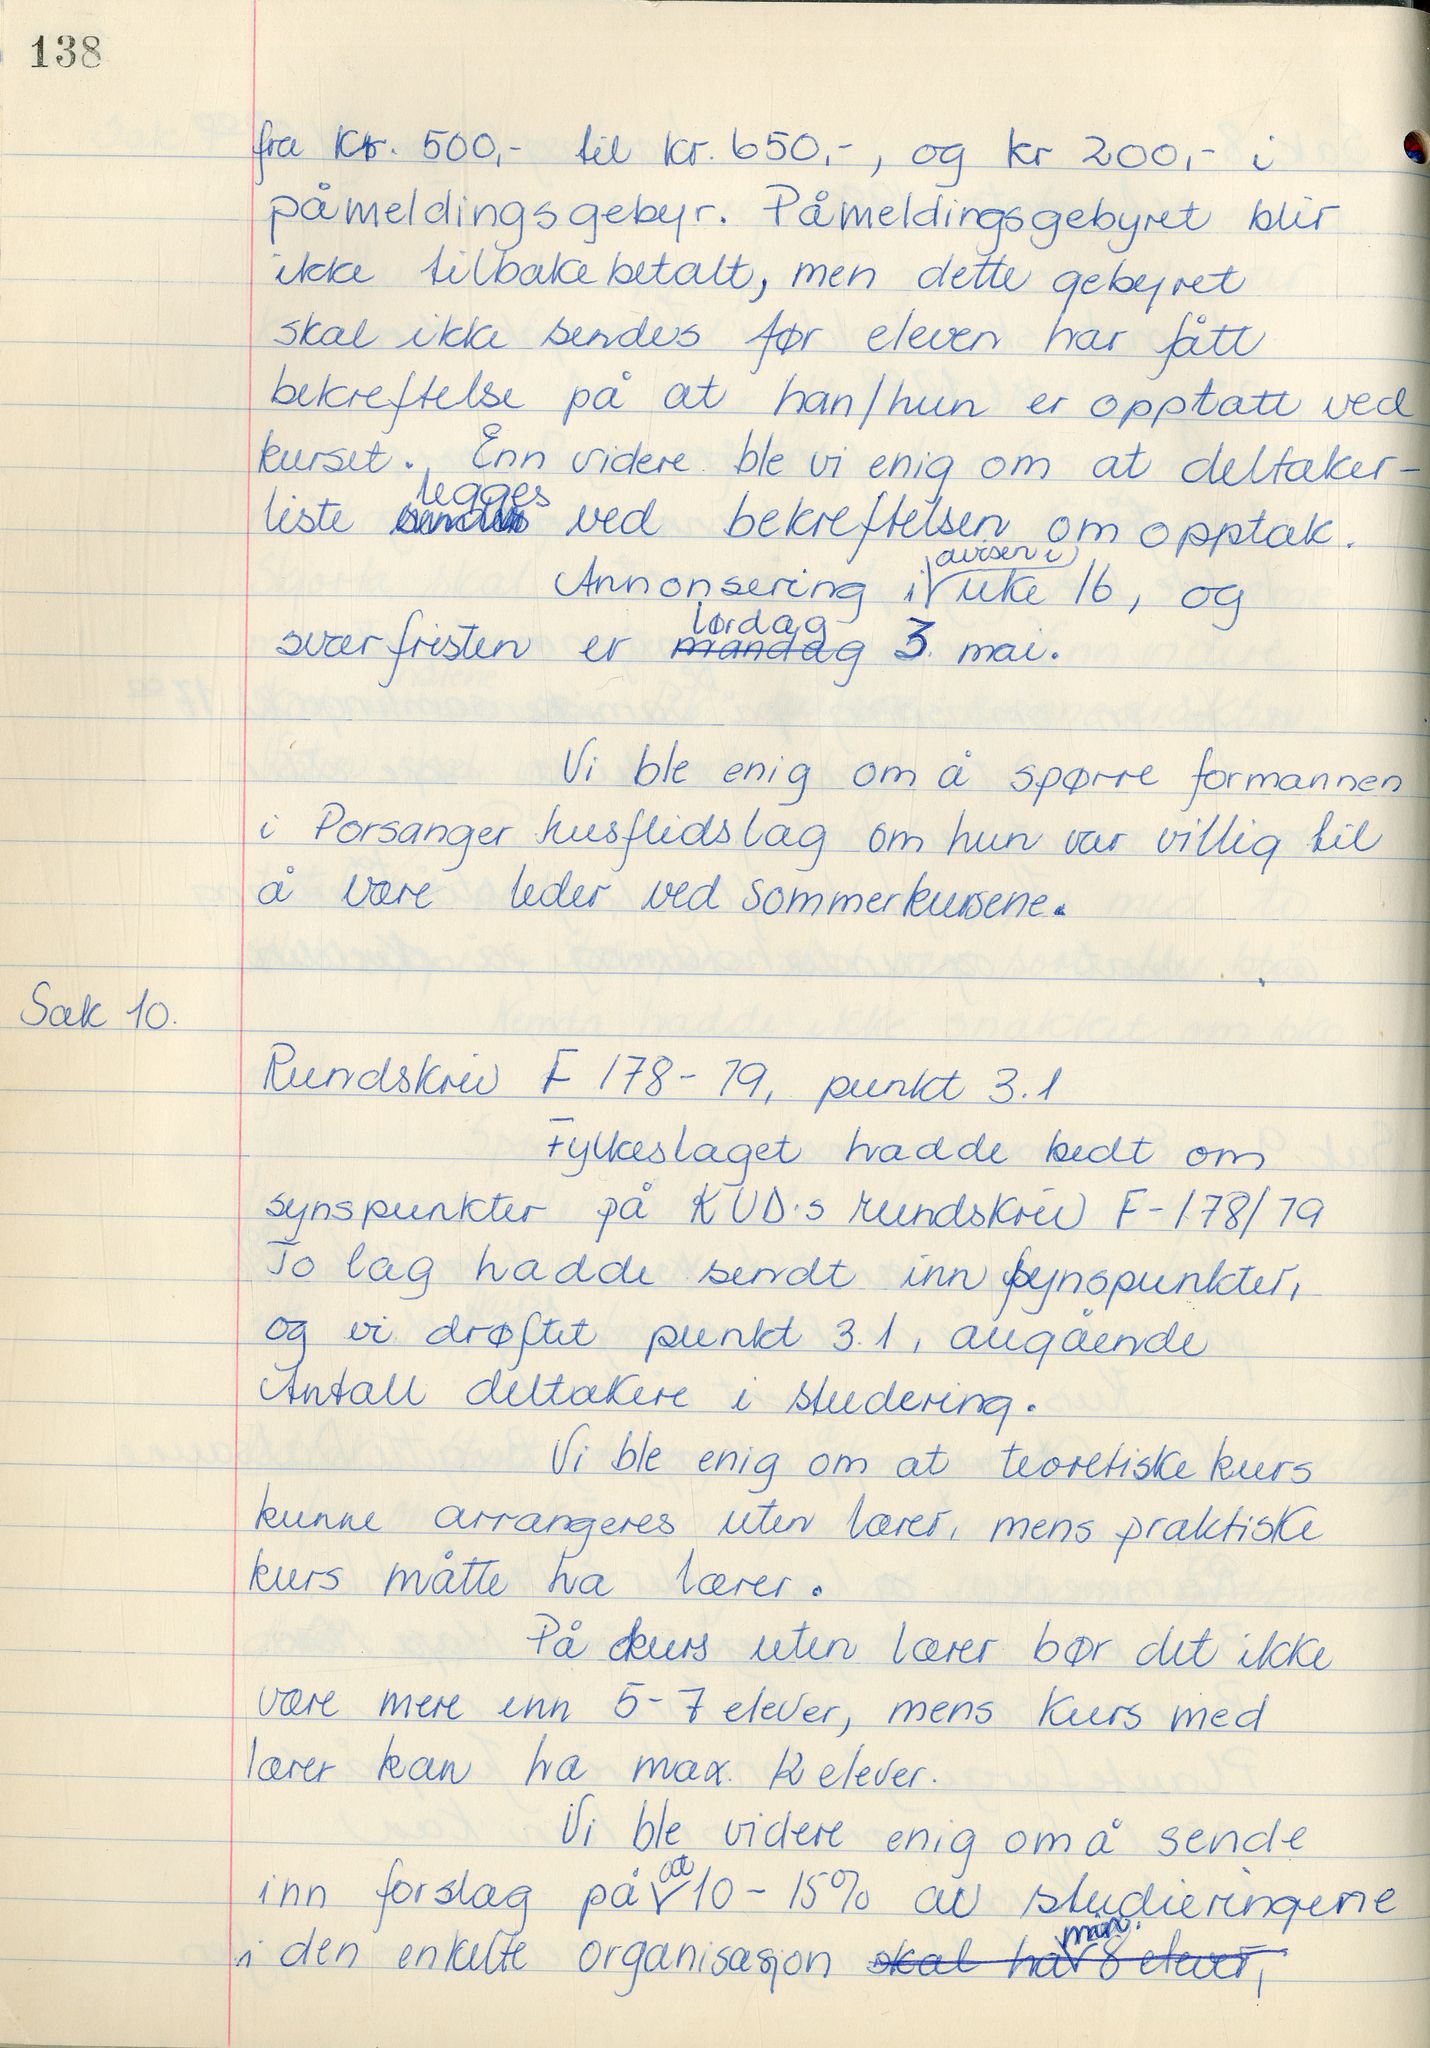 138
fra Kr. 500,- til kr. 650,-, og kr 200,- i
påmeldingsgebyr. Påmeldingsgebyret blir
ikke tilbakebetalt, men dette gebyret
skal ikke sendes før eleven har fått
bekreftelse på at han/hun er opptatt ved
kurset. Enn videre ble vi enig om at deltaker-
legges
liste sendes ved bekreftelsen om opptak.
avisen i
Annonsering i uke 16, og
lørdag
svarfristen er mandag 3. mai.
Vi ble enig om å spørre formannen
i Porsanger husflidslag om hun var villig til
å være leder ved sommerkursene.
Sak 10.
Rundskriv F 178-79, punkt 3.1
Fylkeslaget hadde bedt om
synspunkter på KUD's rundskriv F-178/79
To lag hadde sendt inn synspunkter,
og vi drøftet punkt 3.1, angående
Antall deltakere i studering.
Vi ble enig om at teoretiske kurs
kunne arrangeres uten lærer, mens praktiske
kurs måtte ha lærer.
På kurs uten lærer bør det ikke
være mere enn 5-7 elever, mens kurs med
lærer kan ha max. 12 elever.
Vi ble videre enig om å sende
at
inn forslag på 10-15% av studieringene
min.
i den enkelte organisasjon skal ha 8 elever,